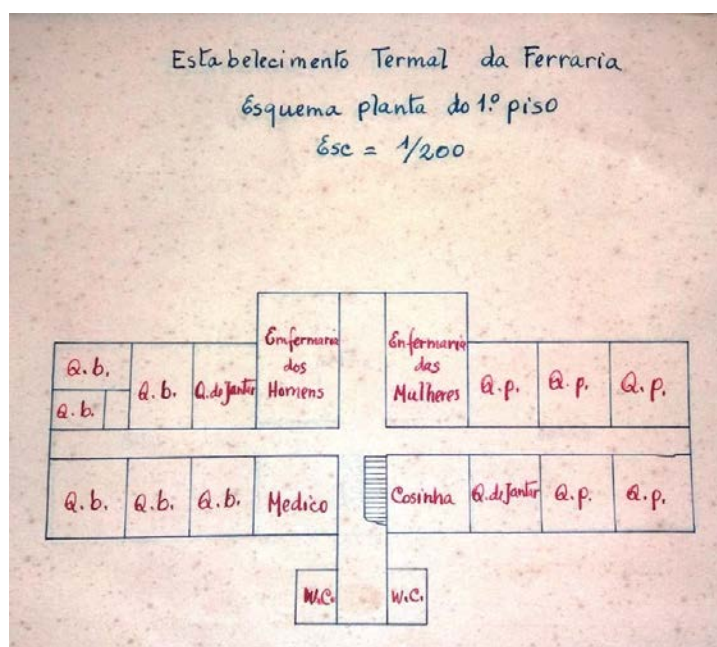 Estabelecimento Termal da Ferraria
Esquema planta do 1.º piso
Esc = 1/200
Enfermaria
dos
Homens
Enfermaria
das
Mulheres
Q. b.
Q. b.
Q. b.
Q. de Jantar
Q. p.
Q. p.
Q. p.
Q. b.
Q. b.
Q. b.
Medico
Cosinha
Q. de Jantar
Q. p.
Q. p.
W.C.
W.C.